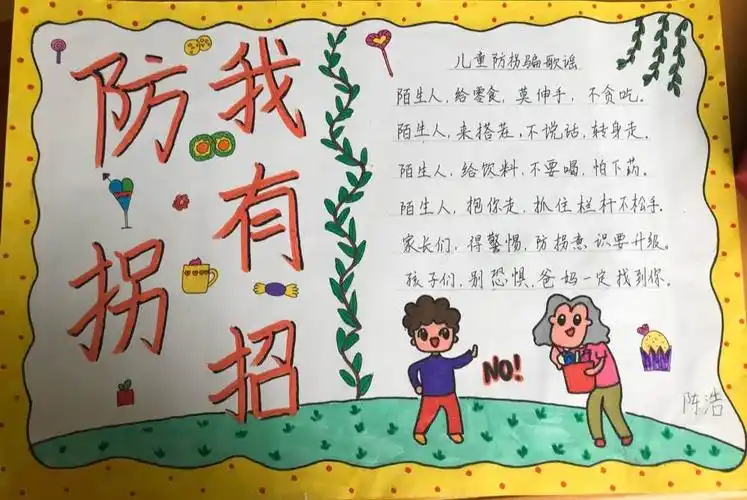 防拐
我有招
儿童防拐骗歌谣
陌生人，给零食，莫伸手，不贪吃。
陌生人，来搭茬，不说话，转身走。
陌生人，给饮料，不要喝，怕下药。
陌生人，抱你走，抓住栏杆不松手。
家长们，得警惕，防拐意识要升级。
孩子们，别恐惧，爸妈一定找到你。
NO!
陈浩